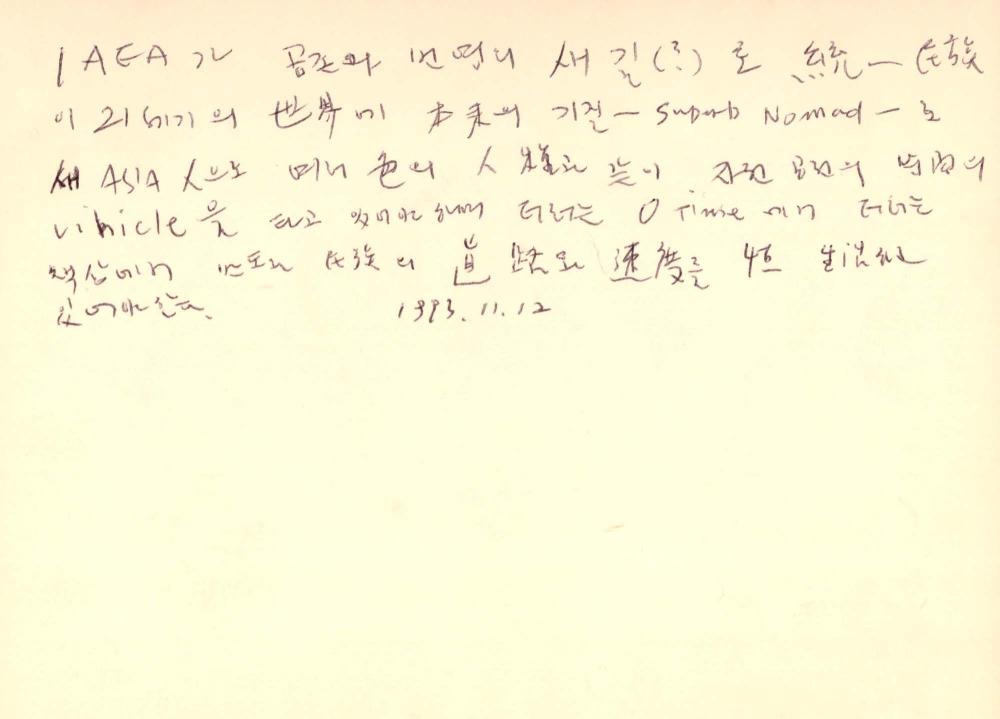 IAEA가 공존과 번영의 새 길(?)로 統一民族
이 21세기의 世界에 本来의 기질 - Superb Nomad - 로
새 ASIA 人으로 色의 人種과 같이 자전 공전의 时间의
vihicle을 타고 있어야 하며 더러는 0 Time에서 더러는
책상에서 반도 民族의 道路와 速度를 恒 生活하고
있어야 한다. 1993.11.12